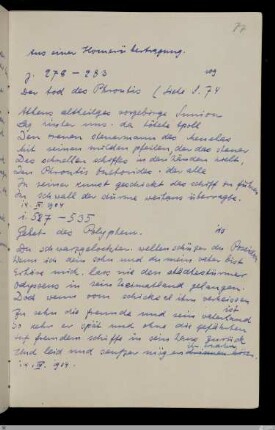 77
Aus einer Homerübertragung.
γ. 278 - 283
Der tod des Phrontis (Siehe S. 74
Athens altheiliges vorgebirge Sunion
Lag rings um uns. da tötete Apoll
Den treuen steuermann des Menelas
Mit seinen milden pfeilen, der das steuer
Des schnellen schiffes in den händen hielt,
Den Phrontis Onetorides. der alle
In seiner kunst geschickt das schiff zu führen
Im schwall der stürme weitaus überragte.
IX. 1944
ι. 527 - 535
Gebet des Polyphem.
Du schwarzgelockter wellenschüttler Poseidon
Wenn ich dein sohn und du mein vater bist
Erhöre mich, lass nie den städtestürmer
Odysseus in sein heimatland gelangen.
Doch wenn vom schicksal ihm verheissen ist
Zu sehn die freunde und sein vaterland
So kehr er spät und ohne die gefährten
Auf fremdem schiffe in sein land zurück
Und leid und seufzer mög er
IX. 1944.